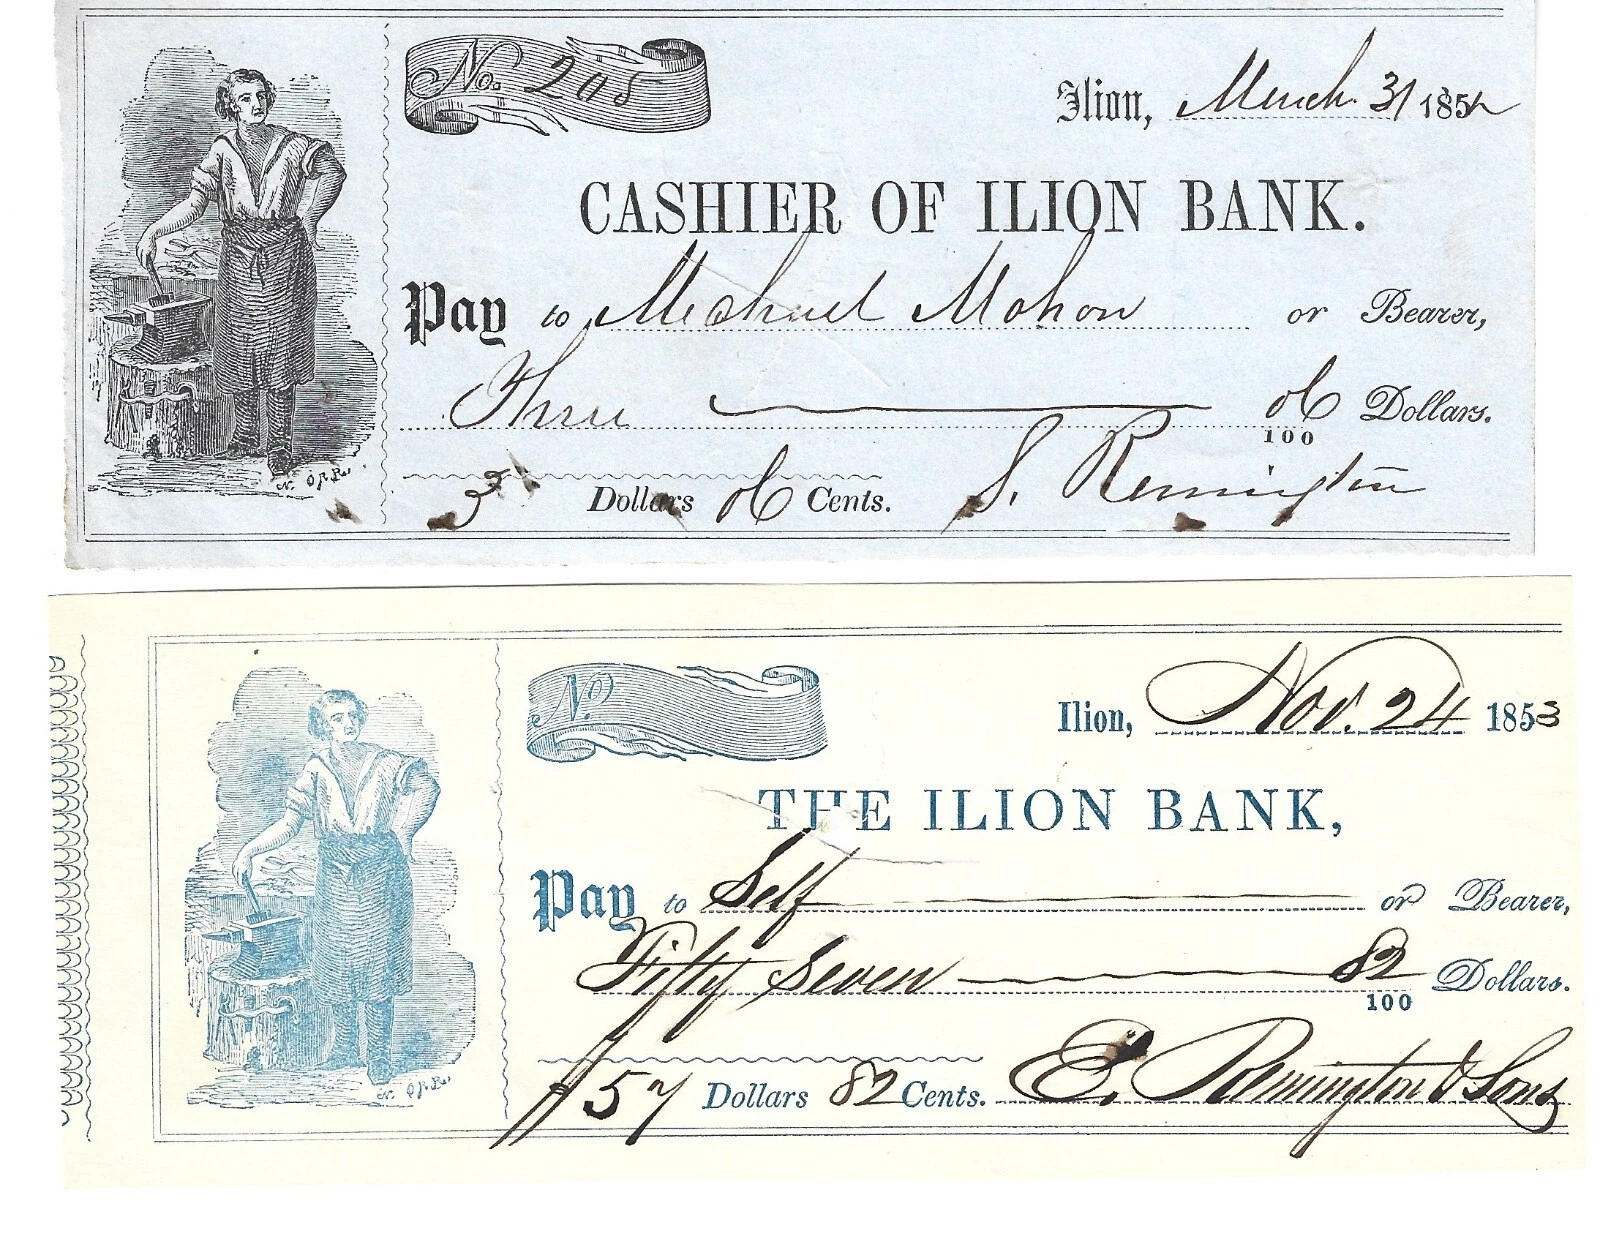 No. 208
Ilion, March 31 1854
CASHIER OF ILION BANK.
Pay to Michael Mahon or Bearer,
Three 06/100 Dollars.
3 Dollars 06 Cents. S. Remington
N. ORR
No.
Ilion, Nov. 24 1853
THE ILION BANK,
Pay to Self or Bearer,
Fifty Seven 82/100 Dollars.
$57 Dollars 82 Cents. E. Remington & Sons
N. ORR